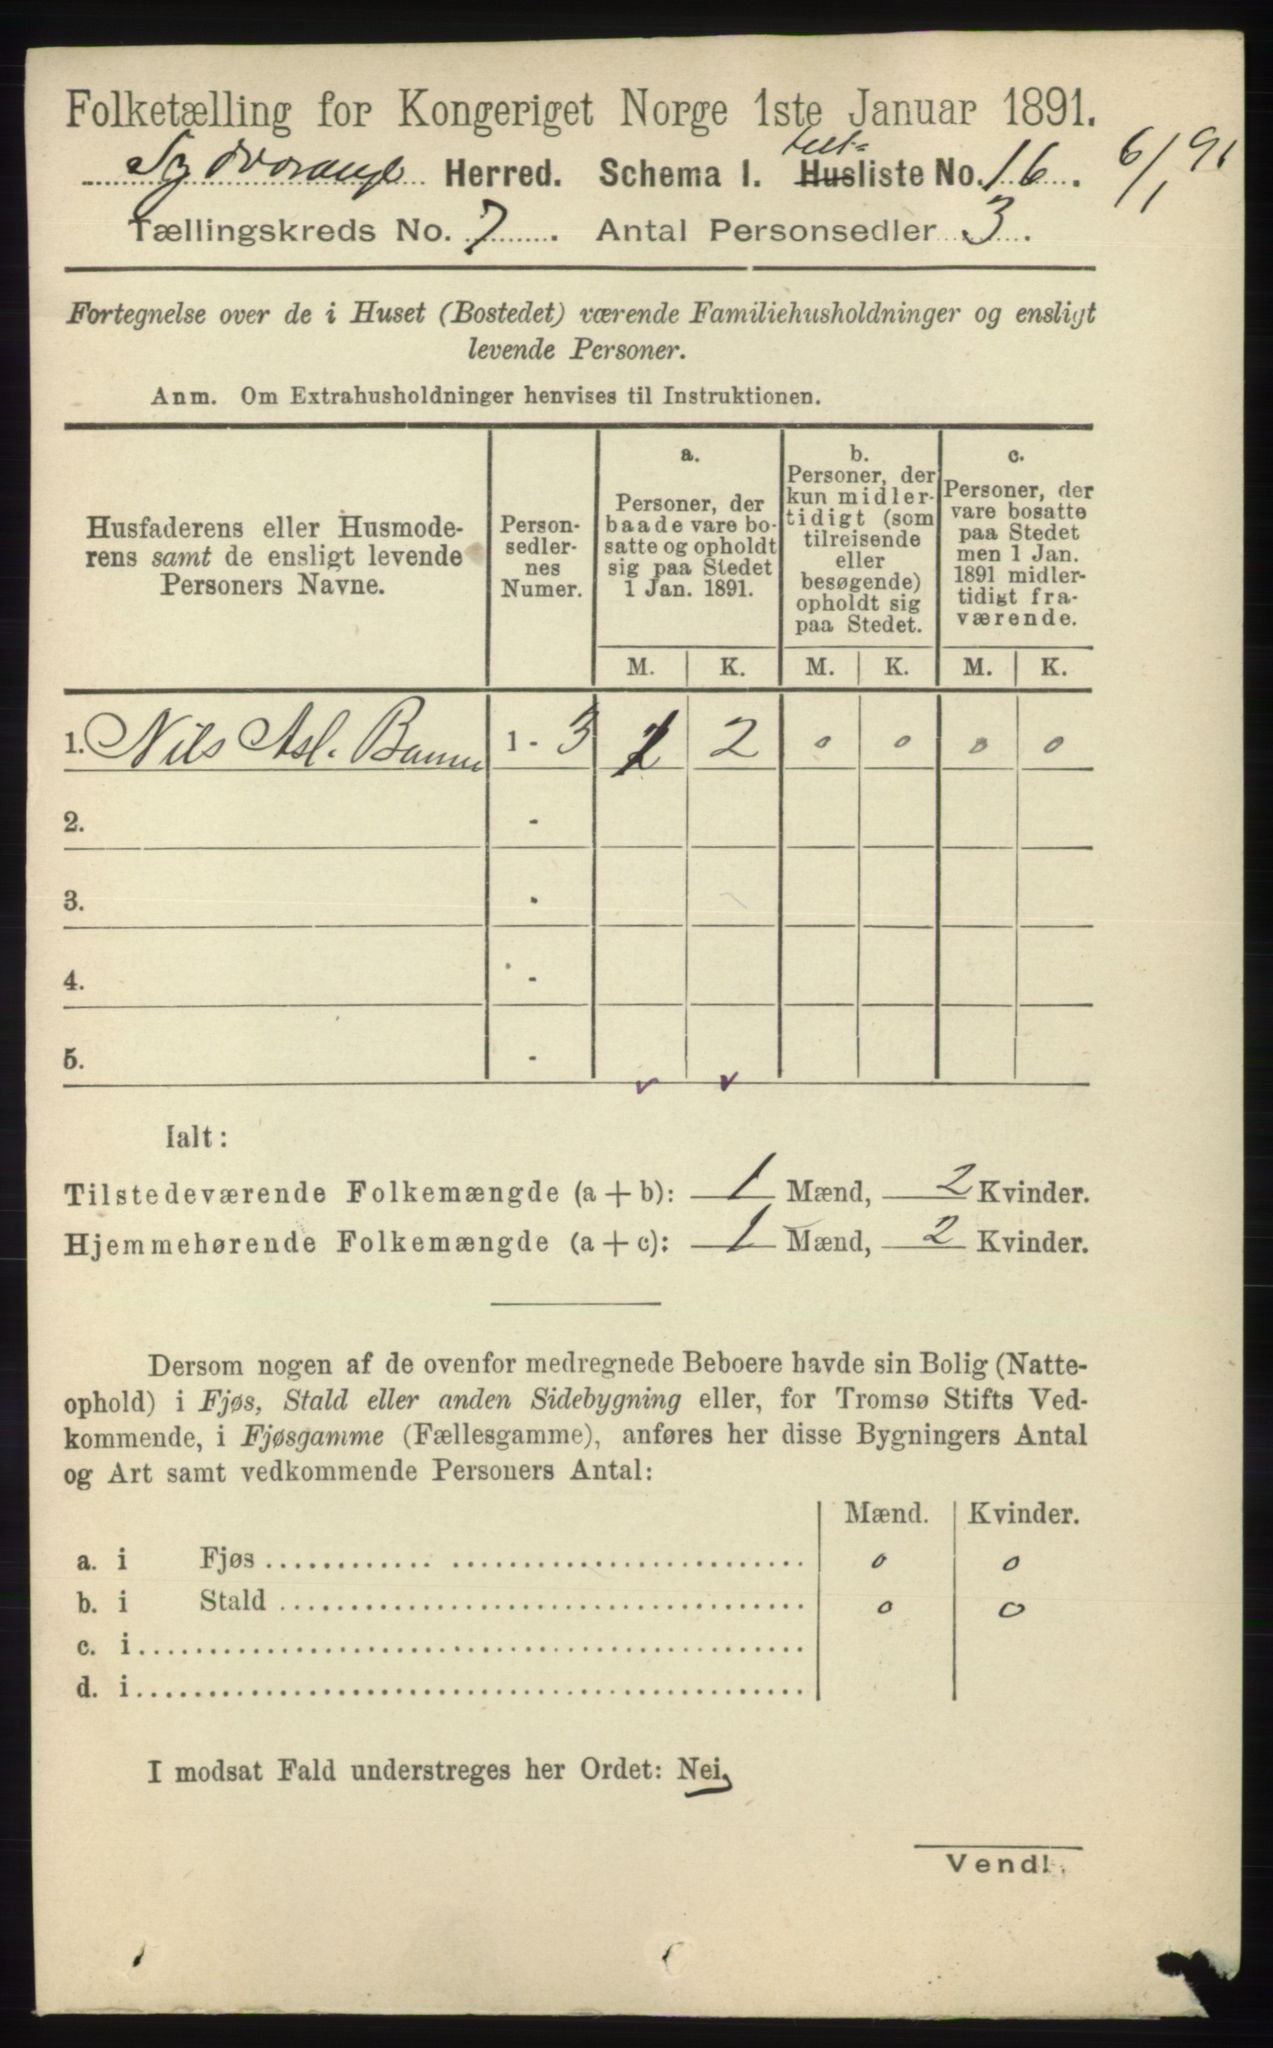 Folketælling for Kongeriget Norge 1ste Januar 1891.
Sydvaranger Herred. Schema I. Husliste No. 16. 6/1 91
Telt-
Tællingskreds No. 7. Antal Personsedler 3.
Fortegnelse over de i Huset (Bostedet) værende Familiehusholdninger og ensligt
levende Personer.
Anm. Om Extrahusholdninger henvises til Instruktionen.
Husfaderens eller Husmode-
rens samt de ensligt levende
Personers Navne.
Person-
sedler-
nes
Numer.
a.
Personer, der
baade vare bo-
satte og opholdt
sig paa Stedet
1 Jan. 1891.
b.
Personer, der
kun midler-
tidigt (som
tilreisende
eller
besøgende)
opholdt sig
paa Stedet.
c.
Personer, der
vare bosatte
paa Stedet
men 1 Jan.
1891 midler-
tidigt fra-
værende.
M. K. M. K. M. K.
1. Nils Asl. 1 - 3 1 2 0 0 0 0
2. -
3. -
4. -
5. -
Ialt:
Tilstedeværende Folkemængde (a + b): 1 Mænd, 2 Kvinder.
Hjemmehørende Folkemængde (a + c): 1 Mænd, 2 Kvinder.
Dersom nogen af de ovenfor medregnede Beboere havde sin Bolig (Natte-
ophold) i Fjøs, Stald eller anden Sidebygning eller, for Tromsø Stifts Ved-
kommende, i Fjøsgamme (Fællesgamme), anføres her disse Bygningers Antal
og Art samt vedkommende Personers Antal:
Mænd. Kvinder.
a. i Fjøs 0 0
b. i Stald 0 0
c. i
d. i
I modsat Fald understreges her Ordet: Nei.
Vend!